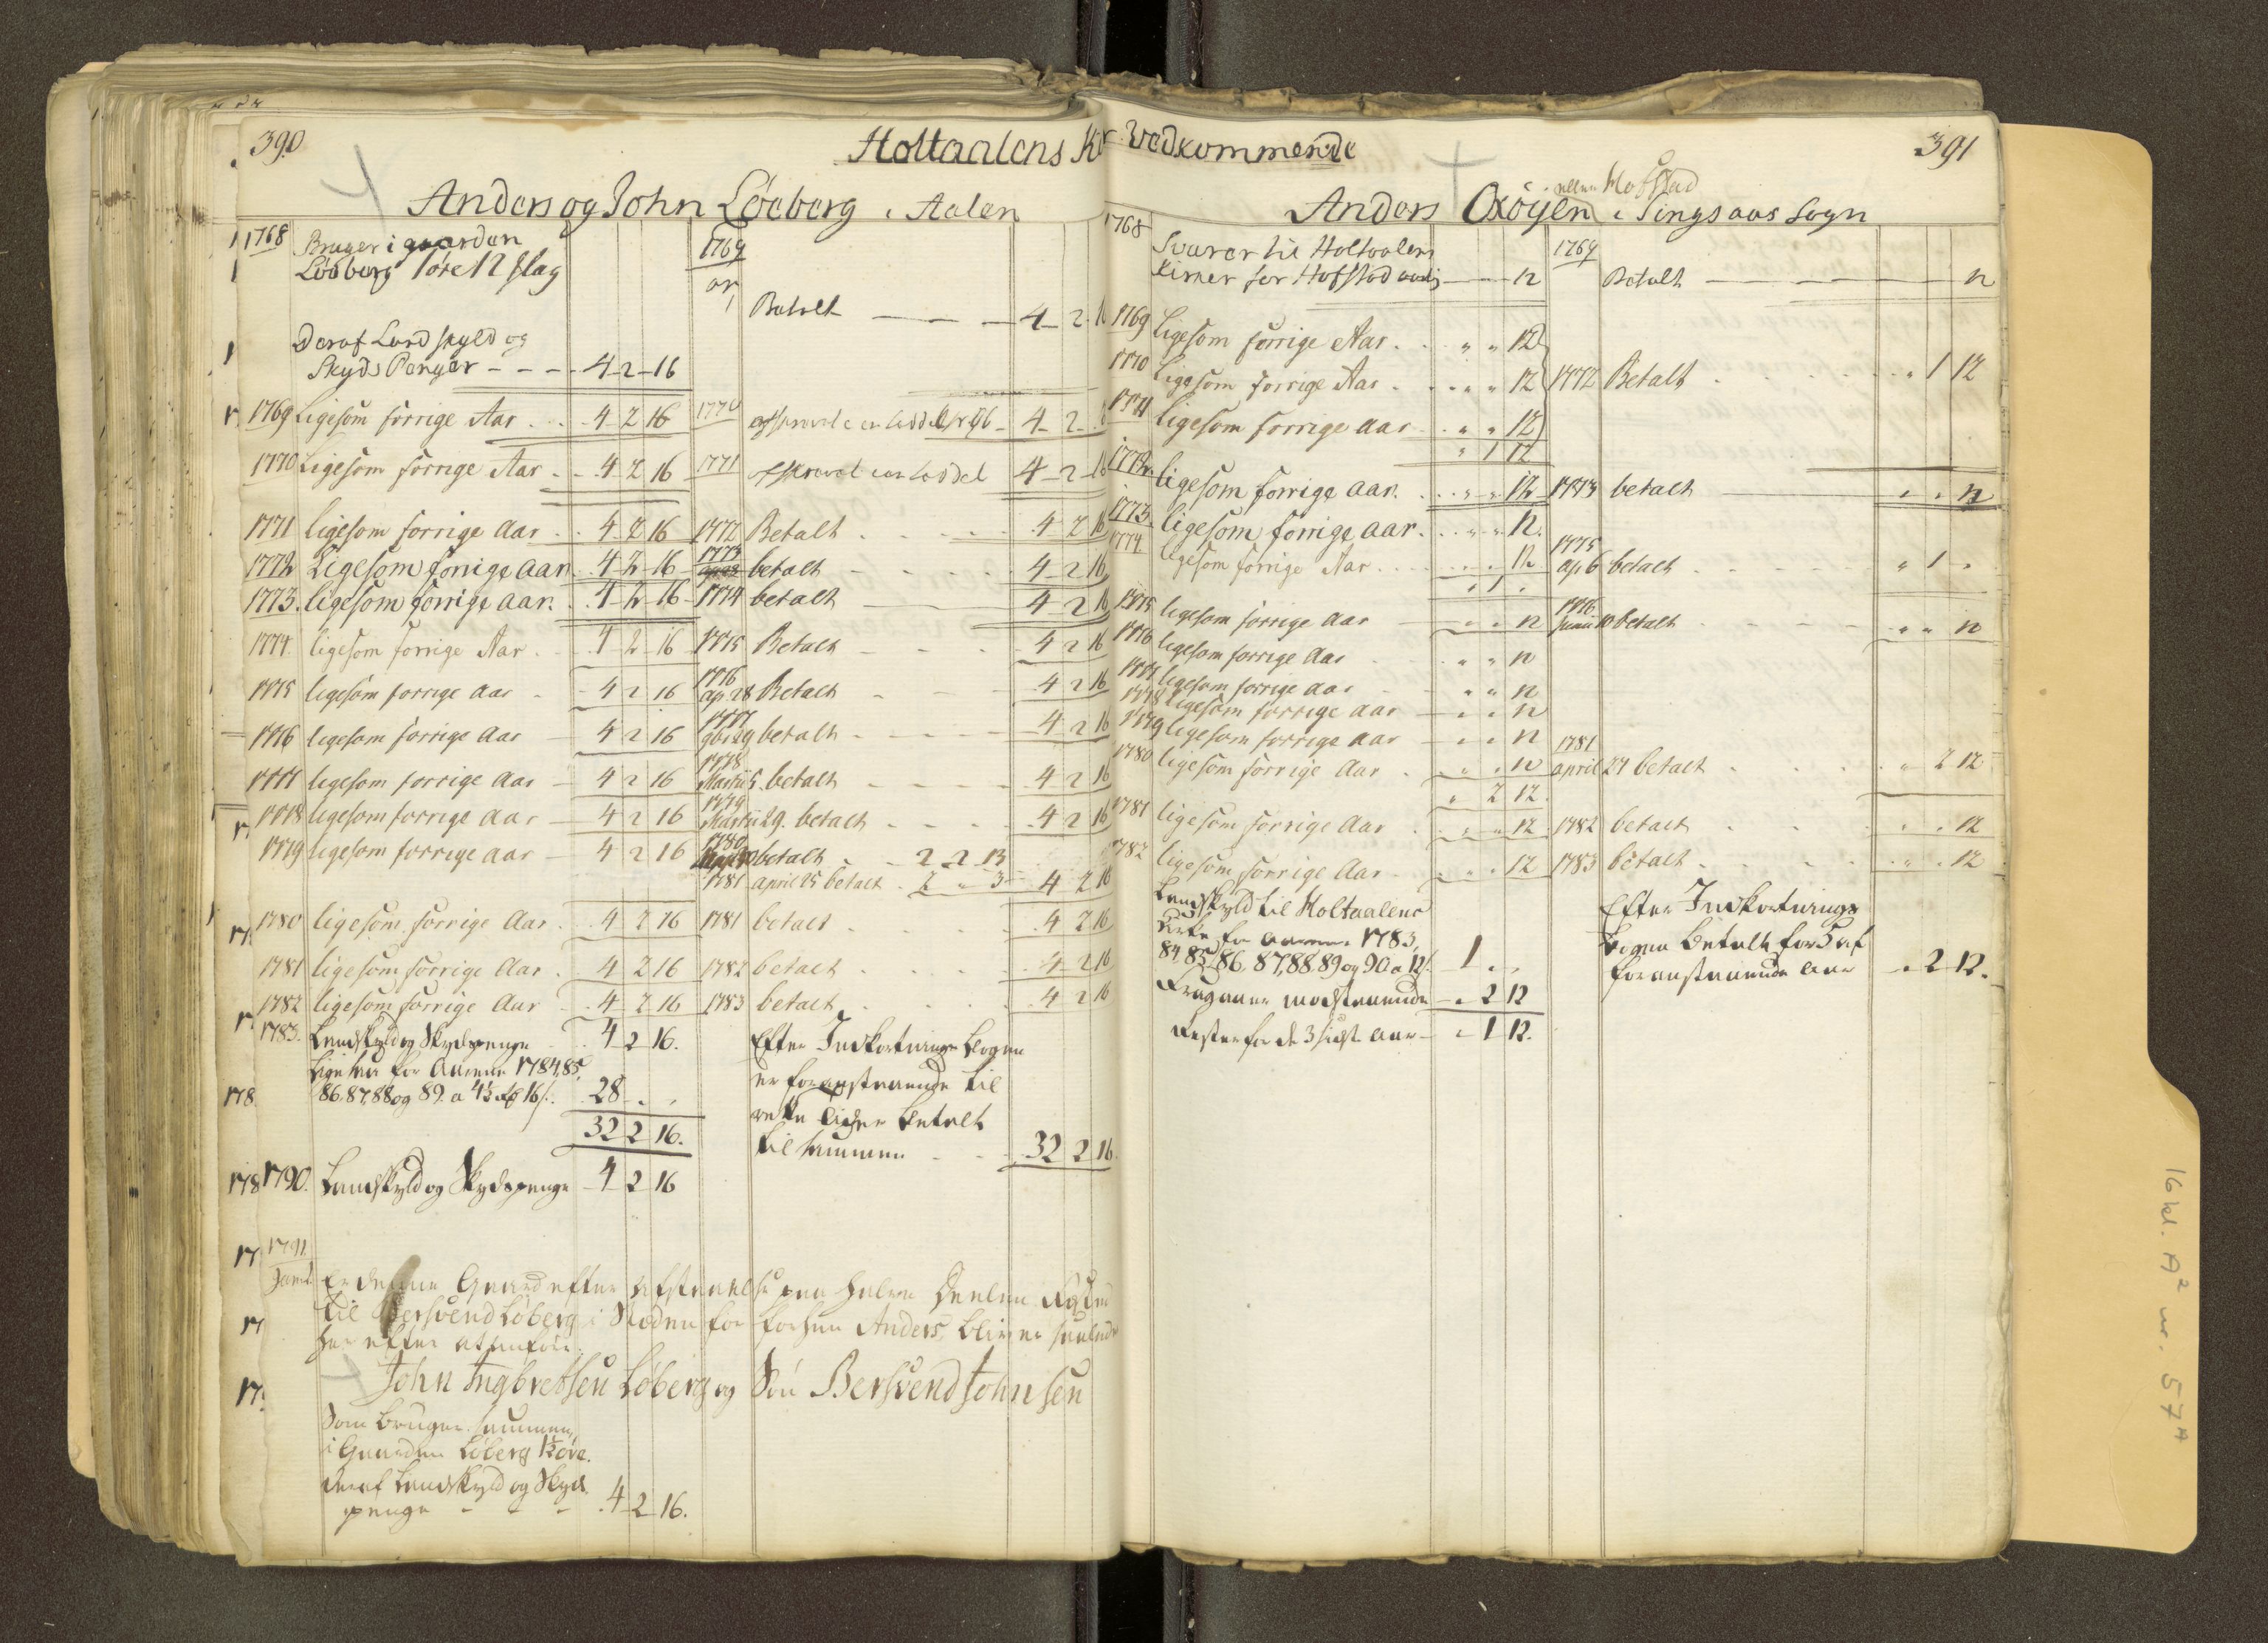 390
Holtaalens Kir Vedkommende
391
Anders og John Løeberg i Aalen
1768 Bruger i gaarden
Løeberg 1 øre 12 slag
Deraf Landskyld og
Skyds Penger - - - 4 2 16
1769 Betalt — — — 4 2 16
1769 Ligesom forrige Aar . . 4 2 16 1770 4 2
1770 Ligesom forrige Aar . . 4 2 16 1771 4 2 16
1771 ligesom forrige Aar . . 4 2 16 1772 Betalt . . . . 4 2 16
1772 Ligesom forrige aar . 4 2 16 1773 betalt - - - 4 2 16
1773. ligesom forrige aar. 4 2 16 1774 betalt — 4 2 16
1774 ligesom forrige Aar . . 4 2 16 1775 Betalt - - - 4 2 16
1775 ligesom forrige aar - 4 2 16 1776 ap. 28 Betalt - - 4 2 16
1776 ligesom forrige aar — 4 2 16 1777 9br 29 betalt - - - - 4 2 16
1777 ligesom forrige aar — 4 2 16 1778 Martii 5. betalt - - - - 4 2 16
1778 ligesom forrige aar — 4 2 16 1779 Martii 29. betalt - - - 4 2 16
1779 ligesom forrige aar — 4 2 16 1780 betalt - - 2 2 13
1781 april 25 betalt . 2 " 3 4 2 16
1780 ligesom forrige Aar . . 4 2 16 1781 betalt . . . . 4 2 16
1781 ligesom forrige Aar . 4 2 16 1782 betalt . . . . 4 2 16
1782 ligesom forrige Aar . 4 2 16 1783 betalt . . . . 4 2 16
1783. Landskyld og Skydspenge . 4 2 16.
Ligeledes for Aarene 1784, 85,
86, 87, 88 og 89. a 4½ rdr 16 s. 28 . .
32 2 16.
Efter Indkortnings Bogen
er foranstaaende til
rette tider betalt
tilsammen - - - 32 2 16.
1790. Landskyld og Skydspenge 4 2 16
1791.
Er denne Gaard efter afstaaelse paa halve Deelen
til Bersvend Løberg i Stæden for forhen Anders, bliver saaledes
her efter at anføre:
John Ingbretsen Løberg og Søn Bersvend Johnsen
Som bruger sammen
i Gaarden Løberg 1½ øre.
deraf Landskyld og Skyds
penge - - - . 4 2 16.
Anders Oxøyen eller Hofstad i Singsaas Sogn
1768 Svarer til Holtaalens
Kirker for Hofstad — 12 1769 Betalt — — — 12
1769 Ligesom forrige Aar . . " " 12
1770 Ligesom forrige Aar . . " " 12 1772 Betalt . . . . " 1 12
1771 Ligesom forrige aar . " " 12
" 1 12
1772. ligesom forrige aar. . . " " 12 1773 betalt — " " 12
1773. ligesom forrige aar. . . " " 12.
1774. ligesom forrige Aar . . . " " 12 1775 ap. 6 betalt . . . . " 1 "
" 1 "
1775 ligesom forrige aar — " " 12 1776 Junii 10 betalt - - - " " 12
1776 ligesom forrige aar " " 12
1777 ligesom forrige aar - " " 12
1778 ligesom forrige aar — " " 12
1779 ligesom forrige aar — " " 12
1780 ligesom forrige Aar . " " 12 1781 april 27 betalt . . . . " 2 12
" 2 12.
1781 ligesom forrige Aar . " " 12 1782 betalt . . . " " 12
1782 ligesom forrige Aar . " " 12 1783 betalt . . . . " " 12
Landskyld til Holtaalens
Kirke for Aarene 1783,
84, 85, 86, 87, 88, 89 og 90 a 12 s. 1 . .
Fragaaer modstaaende — . 2 12
Rester for de 3 sidste Aar — . 1 12.
Efter Indkortnings
Bogen betalt for 5 af
foranstaaende Aar . 2 12.
16 kl. A² nr. 57ᴬ